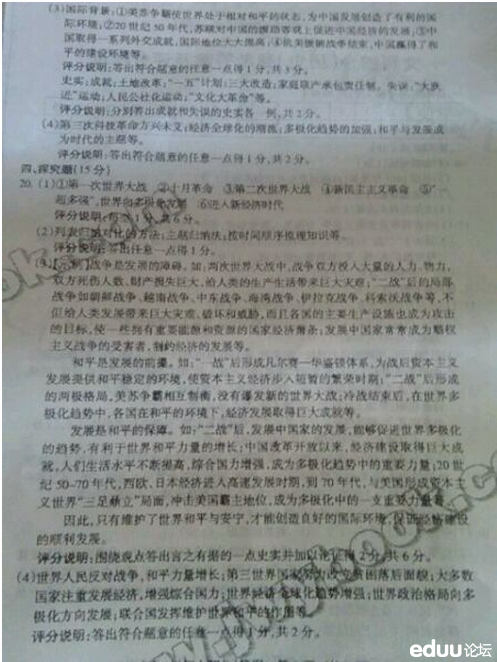 (3)国际背景:①美苏争霸使世界处于相对和平的状态,为中国发展创造了有利的国
际环境;②20世纪50年代,苏联对中国的援助客观上促进中国经济的发展;③中
国取得一系列外交成就,国际地位大大提高;④抗美援朝战争结束,中国赢得了和
平的建设环境等。
评分说明:答出符合题意的任意一点得1分,共3分。
史实:成就:土地改革;“一五”计划;三大改造;家庭联产承包责任制。失误:“大跃
进”运动;人民公社化运动;“文化大革命”等。
评分说明:分别答出成就和失误的史实各一例,共2分。
(4)第三次科技革命方兴未艾;经济全球化的潮流;多极化趋势的加强;和平与发展成
为时代的主题等。
评分说明:答出符合题意的任意一点得1分,共2分。
四、探究题(15分)
20.(1)①第一次世界大战 ②十月革命 ③第二次世界大战 ④新民主主义革命 ⑤“一
超多强”,世界向多极化发展 ⑥进入新经济时代
评分说明:每空1分,共6分。
(2)列表归纳对比的方法;主题归纳法;按时间顺序梳理知识等。
评分说明:答出任意一点得1分。
战争是发展的障碍。如:两次世界大战中,战争双方投入大量的人力、物力,
双方死伤人数、财产损失巨大,给人类的生产生活带来巨大灾难;“二战”后的局部
战争如朝鲜战争、越南战争、中东战争、海湾战争、伊拉克战争、科索沃战争等,不
但给人类发展带来巨大灾难、破坏和威胁,而且各国的主要生产设施也成为攻击
的目标,使一些拥有重要能源和资源的国家经济萧条;发展中国家常常成为霸权
主义战争的受害者,制约经济的发展等。
和平是发展的前提。如:“一战”后形成凡尔赛—华盛顿体系,为战后资本主义
发展提供和平稳定的环境,使资本主义经济步入短暂的繁荣时期;“二战”后形成
的两极格局,美苏争霸相互制衡,没有爆发新的世界大战;冷战结束后,在世界多
极化趋势中,各国在和平的环境下,经济发展取得巨大成就等。
发展是和平的保障。如:“二战”后,发展中国家的发展,能够促进世界多极化
的趋势,有利于世界和平力量的增长;中国改革开放以来,经济建设取得巨大成
就,人们生活水平不断提高,综合国力增强,成为多极化趋势中的重要力量;20世
纪50-70年代,西欧、日本经济进入高速发展时期,到70年代,与美国形成资本主
义世界“三足鼎立”局面,冲击美国霸主地位,成为多极化中的一支重要力量等。
因此,只有维护了世界和平与安宁,才能创造良好的国际环境,促进经济建设
的顺利发展。
评分说明:围绕观点答出言之有据的一点史实并加以论证得2分,共6分。
(4)世界人民反对战争,和平力量增长;第三世界国家努力改变贫困落后面貌;大多数
国家注重发展经济,增强综合国力;世界经济全球化趋势增强;世界政治格局向多
极化方向发展;联合国发挥维护世界和平的作用等。
评分说明:答出符合题意的任意一点得1分,共2分。
eduu论坛